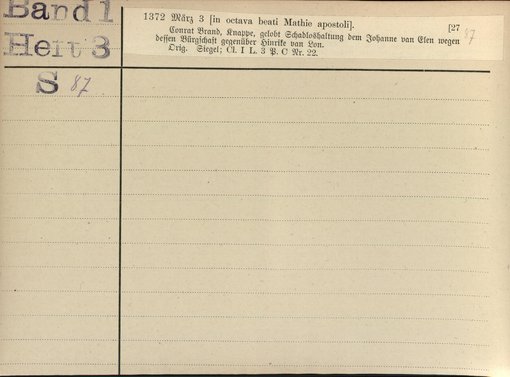 Band 1
Heft 3
S 87
1372 März 3 [in octava beati Mathie apostoli]. [27 87
Conrat Brand, Knappe, gelobt Schadloßhaltung dem Johanne van Elen wegen
dessen Bürgschaft gegenüber Hinrike van Lon.
Orig. Siegel; Cl. I L. 3 P. C Nr. 22.